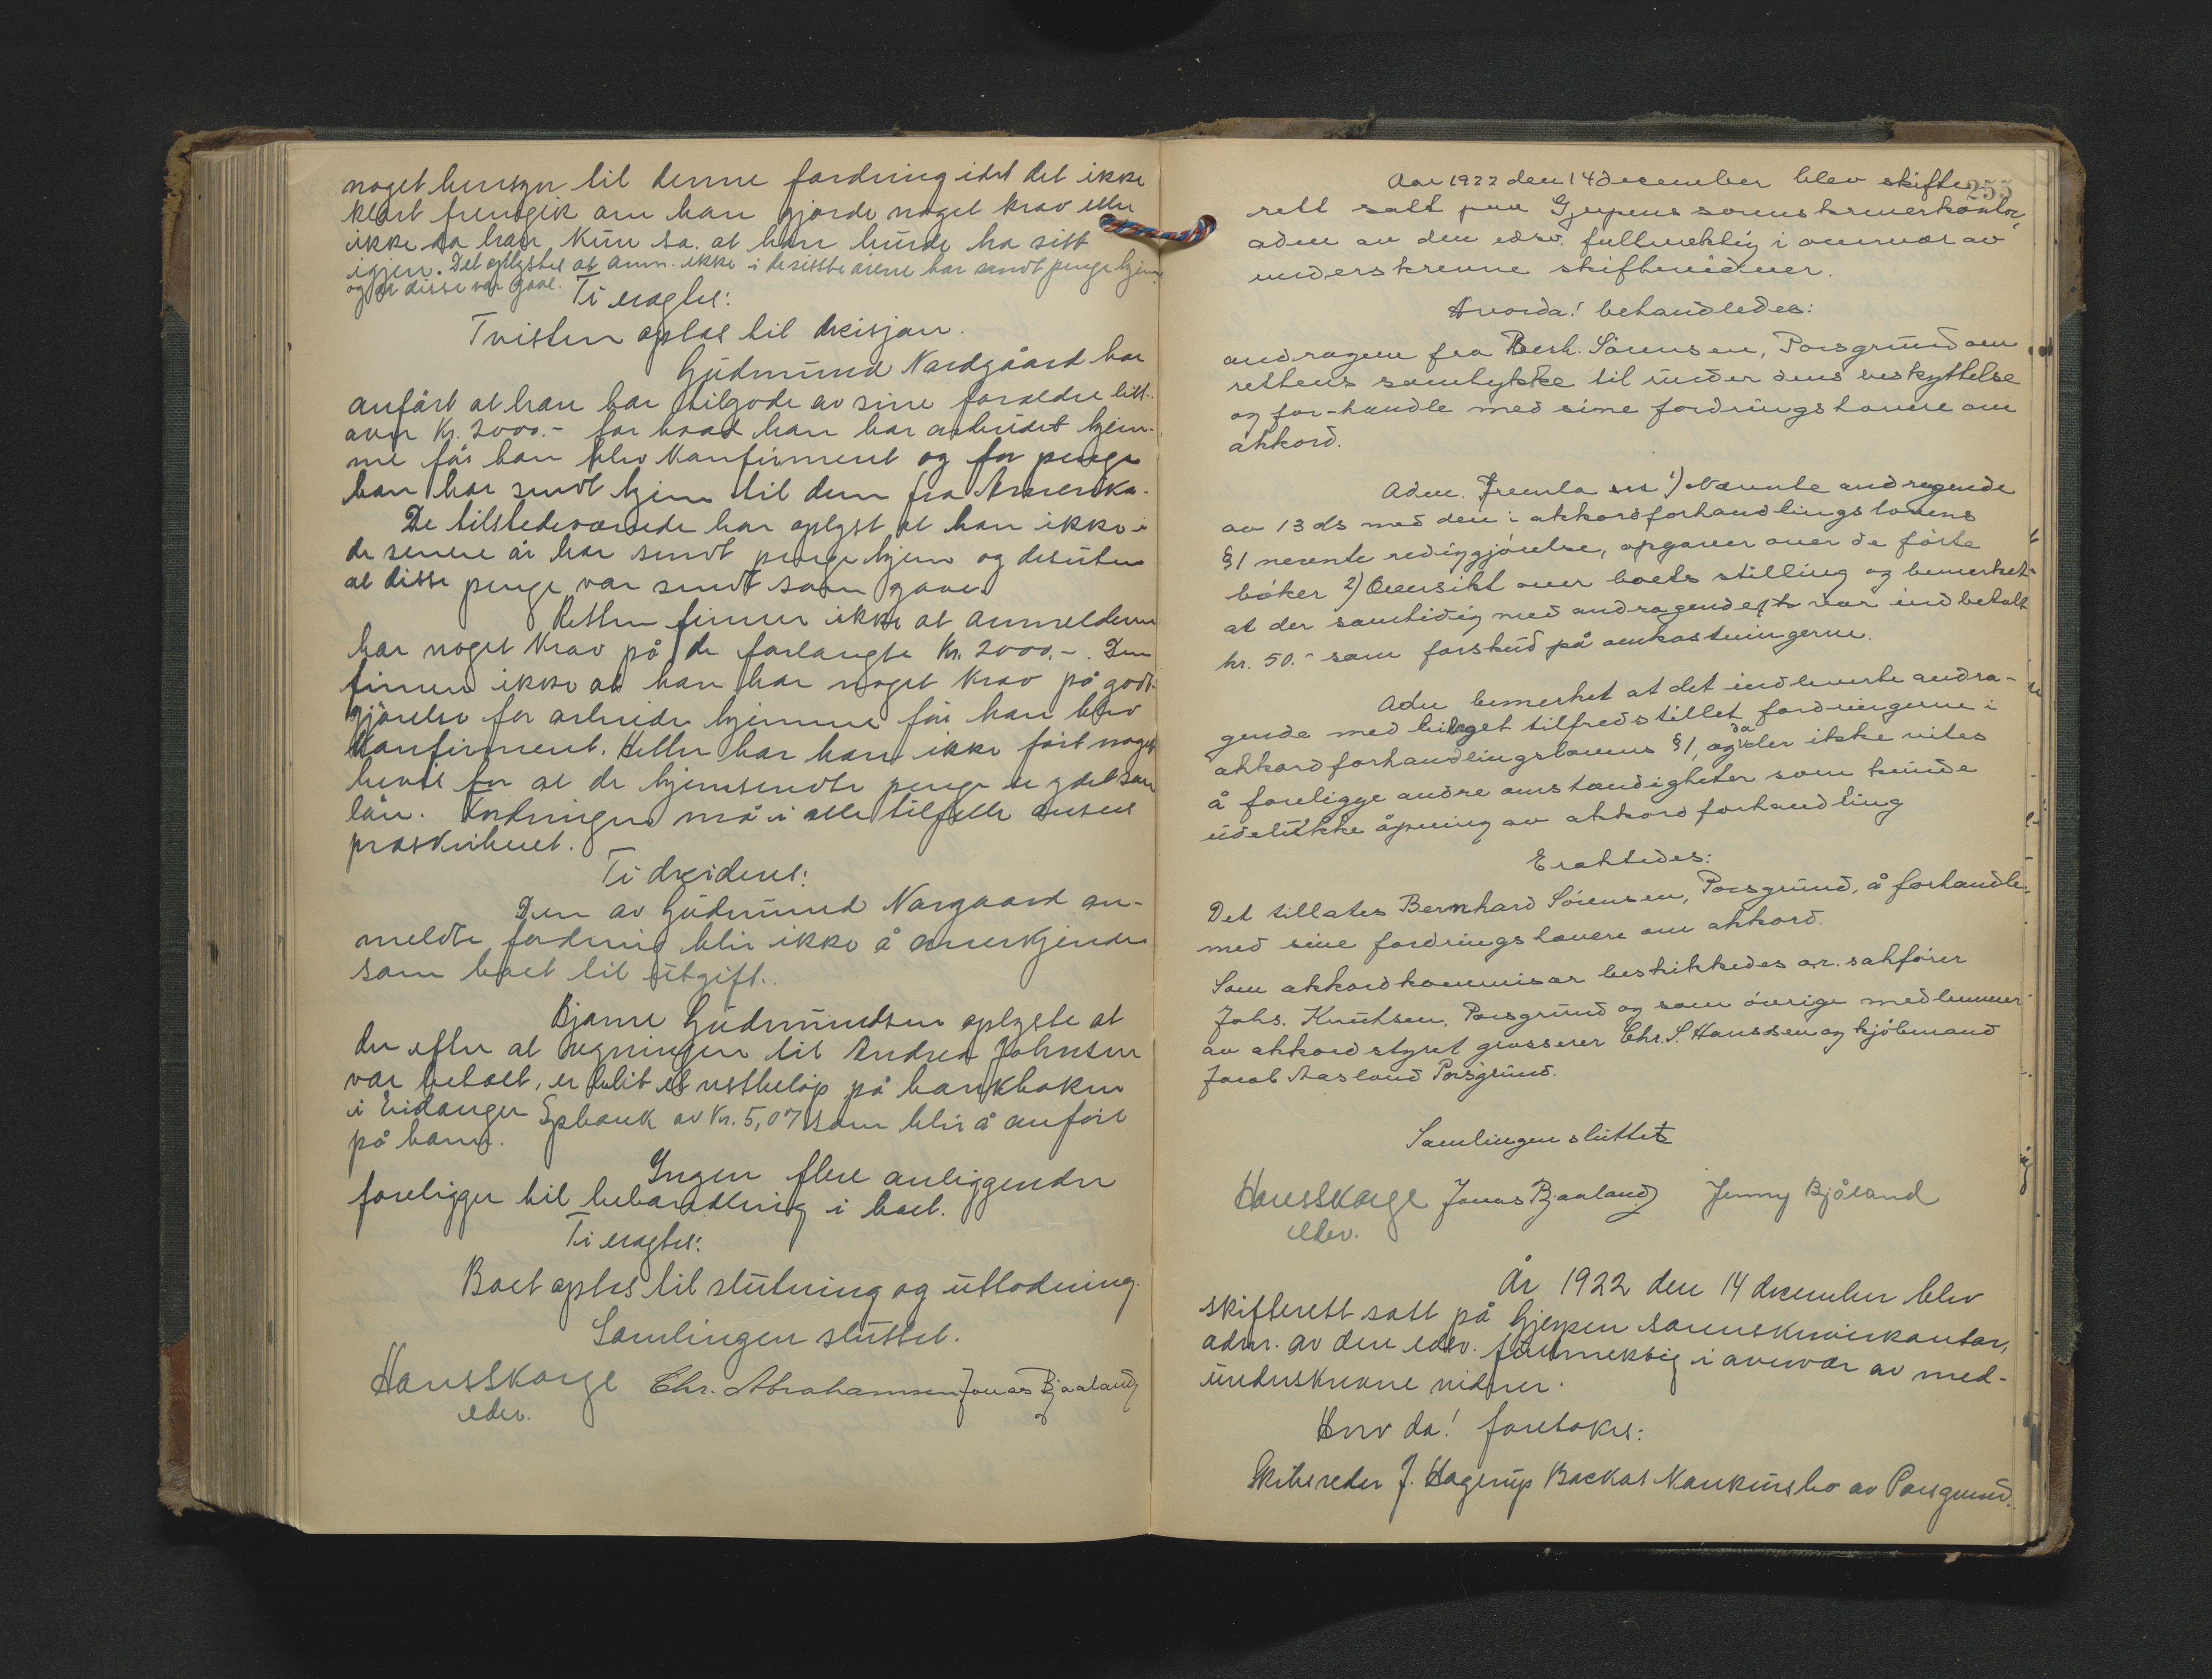 noget hensyn til denne fordring idet det ikke
klart fremgik om han gjorde noget krav eller
ikke da han kun sa at han burde ha sitt
igjen. Det oplystes at anm. ikke i de sisste årene har sendt penge hjem
og at disse var gave.
Ti eragtes:
Tvisten optas til decisjon.
Gudmund Nordgård har
anført at han har tilgode av sine forældre litt
over kr. 2000.- for hvad han har arbeidet hjem-
me før han blev konfirmert og for penge
han har sendt hjem til dem fra Amerika.
De tilstedeværende har oplyst at han ikke i
de senere år har sendt penge hjem og desuten
at disse penge var sendt som gave.
Retten finner ikke at anmelderen
har noget krav på de forlangte kr. 2000,-. Den
finner ikke at han har noget krav på godt-
gjørelse for arbeide hjemme før han blev
konfirmert. Heller har han ikke ført noget
bevis for at de hjemsendte penge er ydet som
lån. Fordringen må i alle tilfelle ansees
præskribert.
Ti decideres:
Den av Gudmund Norgaard an-
meldte fordring blir ikke å anerkjende
som boet til utgift.
Bjarne Gudmundsen oplyste at
der efter at regningen til Andrea Johnsen
var betalt, er blit et restbeløp på bankboken
i Eidanger Spbank av kr. 5,07 som blir å anføre
på ham.
Ingen flere anliggender
foreligger til behandling i boet.
Ti eragtes:
Boet optas til slutning og utlodning.
Samlingen sluttet.
Hans Skorge Chr. Abrahamsen Jonas Bjaaland
edsv.
255
Aar 1922 den 14 december blev skifte-
rett satt paa Gjerpens sorenskriverkontor,
adm av den edsv. fullmektig i overvær av
underskrevne skiftevidner.
Hvorda! behandledes:
andragene fra Bernh. Sørensen, Porsgrund om
rettens samtykke til under dens beskyttelse
og for-handle med sine fordringshavere om
akkord.
Adm. fremla 1) Nævnte andragende
av 13 ds med den i akkordforhandlingslovens
§1 nevnte redigjørelse, opgaver over de førte
bøker 2) Oversikt over boets stilling og bemerket
at der samtidig med andragendet var indbetalt
kr. 50.- som forskud på omkostningerne.
Adm bemerket at det indleverte andra-
gende med bilaget tilfredstillet fordringerne i
akkordforhandlingslovens §1, og da der ikke vites
å foreligge andre omstændigheter som kunde
udelukke åpning av akkordforhandling
Eraktedes:
Det tillates Bernhard Sørensen, Porsgrund, å forhandle
med sine fordringshavere om akkord.
Som akkordkommisær beskikkedes o.r. sakfører
Johs. Knutsen, Porsgrund og som øvrige medlemmer
av akkordstyret grosserer Chr. S. Hanssen og kjøbmand
Jacob Aasland Porsgrund.
Samlingen sluttet
Hans Skorge Jonas Bjaaland Jenny Bjåland
edsv.
År 1922 den 14 december blev
skifterett satt på Gjerpen sorenskriverkontor,
adm. av den edsv. fullmektig i overvær av med-
underskrevne vidner.
Hvor da! foretokes:
Skibsreder J. Hagerup Backas konkursbo av Porsgrund.